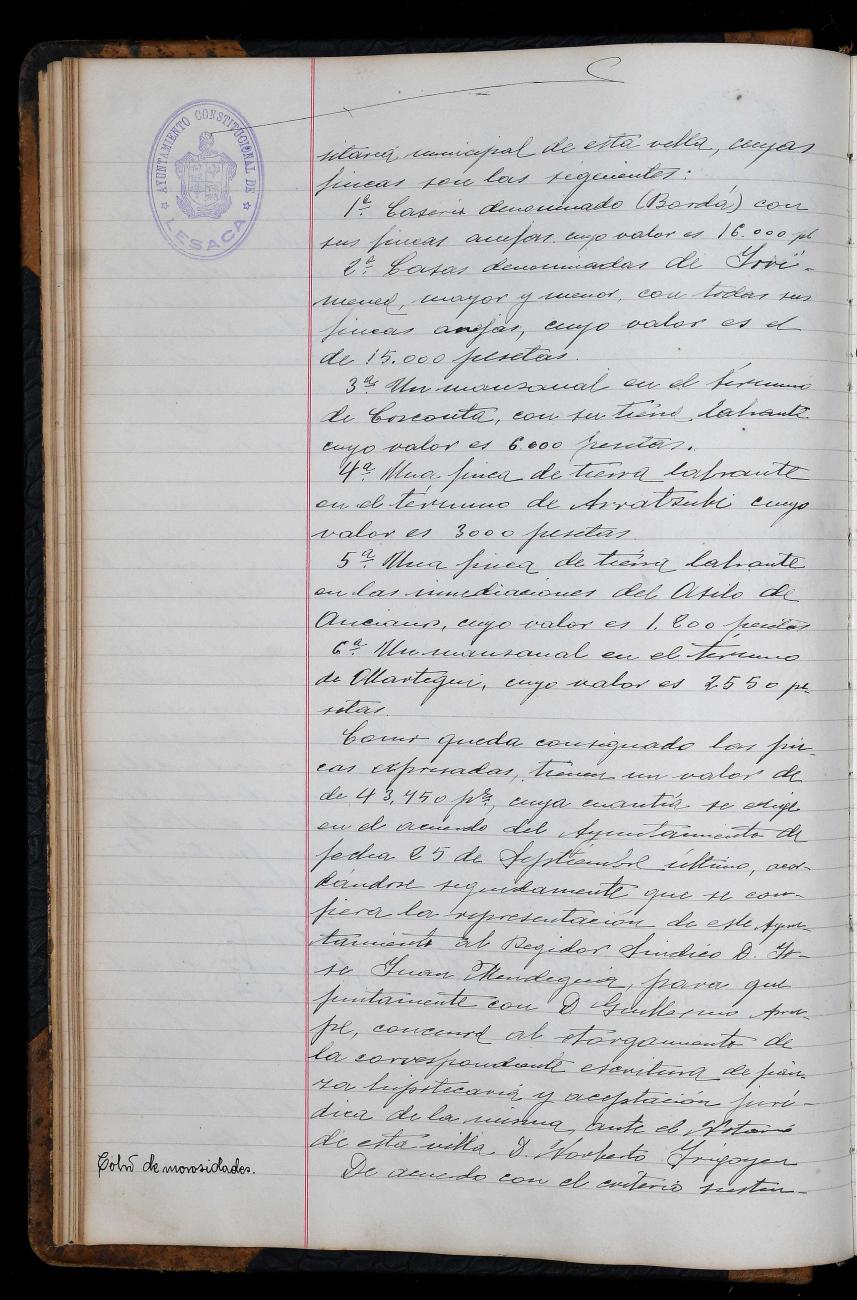 AYUNTAMIENTO CONSTITUCIONAL DE
LESACA
sitaria municipal de esta villa, cuyas
fincas son las siguientes:
1ª. Caserio denominado (Bordá) con
sus fincas anejas cuyo valor es 16.000 pts
2ª. Casas denominadas de
mayor y menor, con todas sus
fincas anejas, cuyo valor es el
de 15.000 pesetas.
3ª. Un mansanal en el término
de Cosconta, con su tierra labrante
cuyo valor es 6.000 pesetas.
4ª. Una finca de tierra labrante
en el término de Arratzubi cuyo
valor es 3000 pesetas
5ª. Una finca de tierra labrante
en las inmediaciones del Asilo de
Ancianos, cuyo valor es 1.200 pesetas
6ª. Un mansanal en el término
de Martegui, cuyo valor es 2550 pe-
setas.
Como queda consignado las fin-
cas expresadas, tienen un valor de
de 43,450 pts, cuya cuantía se exige
en el acuerdo del Ayuntamiento de
fecha 25 de Septiembre último, acor-
dándose seguidamente que se con-
fiera la representación de este Ayun-
tamiento al Regidor Sindico D. Jo-
se Juan Mendeguia, para que
juntamente con D Guillermo
concurra al otorgamiento de
la correspondiente escritura de fian-
za hipotecaria y aceptación jurí-
dica de la misma, ante el Notario
de esta villa D. Norberto Yrigoyen
Cobro de morosidades.
De acuerdo con el criterio susten-